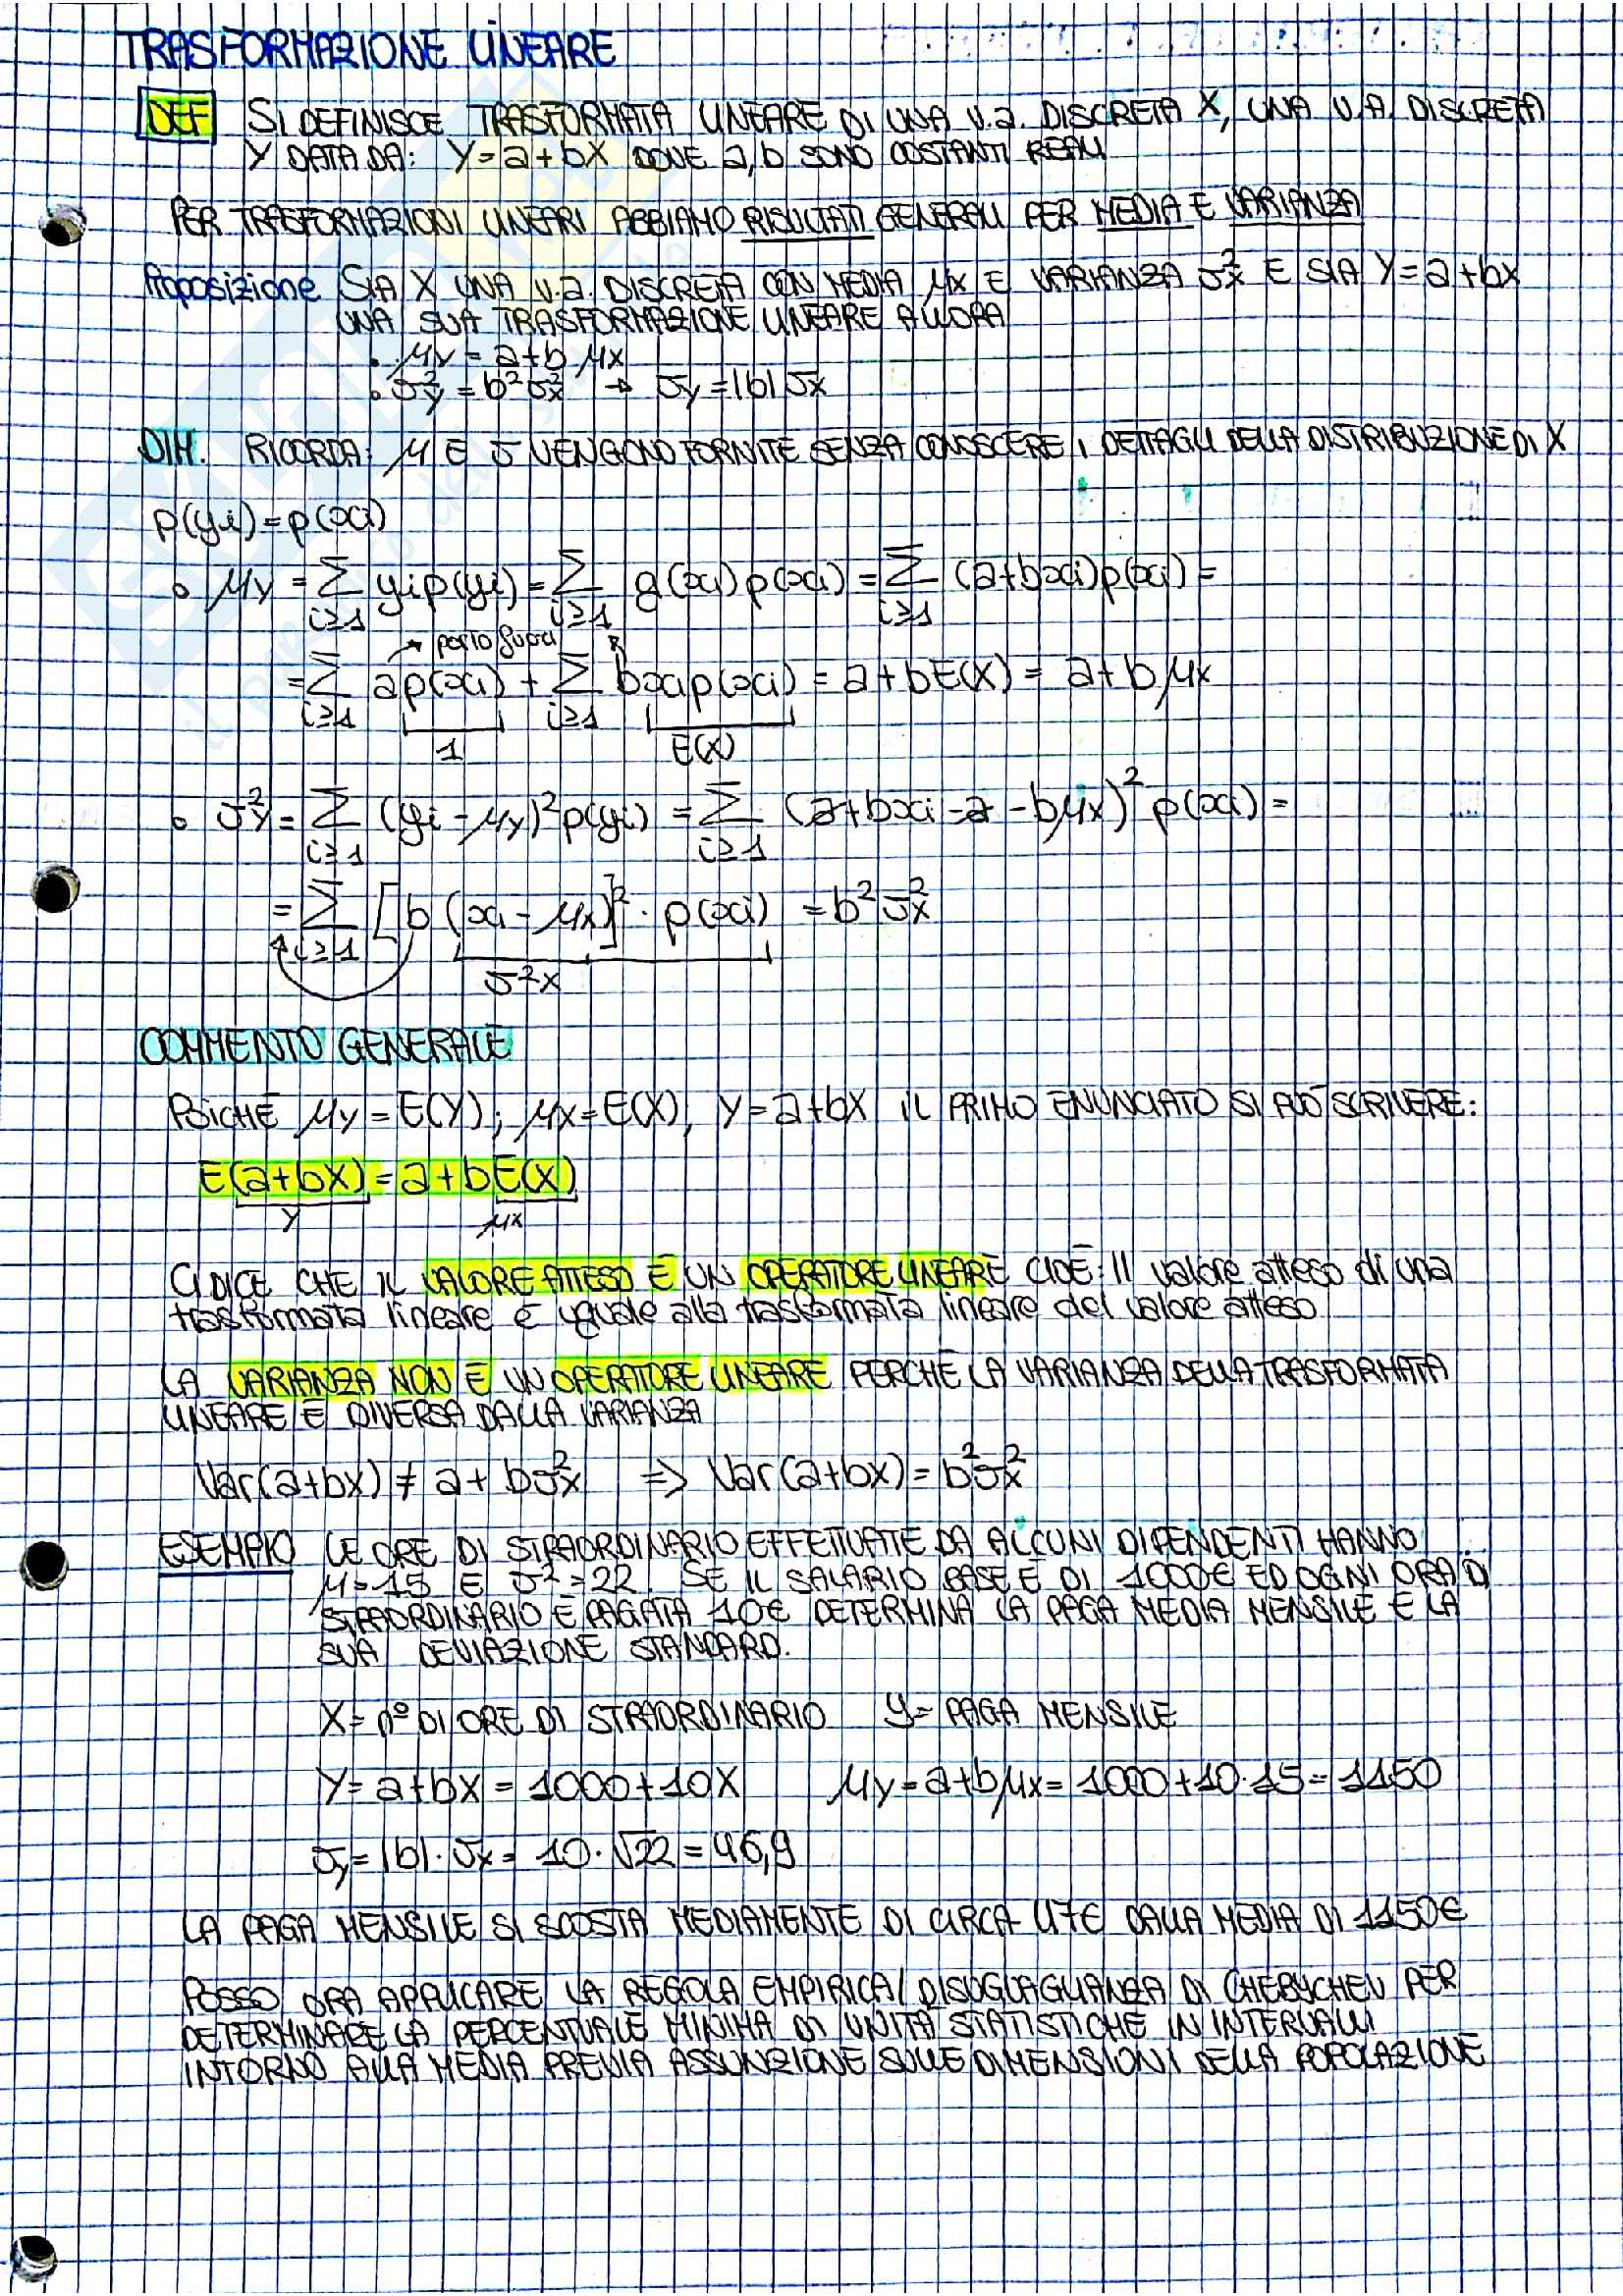 TRASFORMAZIONE LINEARE
DEF SI DEFINISCE TRASFORMATA LINEARE DI UNA v.a. DISCRETA X, UNA V.A. DISCRETA
Y DATA DA: Y=a+bX DOVE a,b SONO COSTANTI REALI
PER TRASFORMAZIONI LINEARI ABBIAMO RISULTATI GENERALI PER MEDIA E VARIANZA
Proposizione SIA X UNA v.a. DISCRETA CON MEDIA μx E VARIANZA σ²x E SIA Y=a+bx
UNA SUA TRASFORMAZIONE LINEARE ALLORA
• μy = a+b μx
• σ²y = b²σ²x → σy = |b|σx
DIM. RICORDA: μ E σ VENGONO FORNITE SENZA CONOSCERE I DETTAGLI DELLA DISTRIBUZIONE DI X
p(yi)=p(xi)
• μy = Σ i≥1 yi p(yi) = Σ i≥1 g(xi)p(xi) = Σ i≥1 (a+bxi)p(xi) =
→ porto fuori
= Σ i≥1 a p(xi) + Σ i≥1 bxi p(xi) = a+bE(X) = a+b μx
1 E(X)
• σ²y = Σ i≥1 (yi-μy)²p(yi) = Σ i≥1 (a+bxi-a-bμx)² p(xi) =
= Σ i≥1 [b (xi-μx)]² · p(xi) = b²σ²x
σ²x
COMMENTO GENERALE
POICHÉ μy=E(Y); μx=E(X), Y=a+bX IL PRIMO ENUNCIATO SI PUÒ SCRIVERE:
E(a+bX)=a+bE(X)
Y μx
CI DICE CHE IL VALORE ATTESO È UN OPERATORE LINEARE CIOÈ: Il valore atteso di una
trasformata lineare è uguale alla trasformata lineare del valore atteso
LA VARIANZA NON È UN OPERATORE LINEARE PERCHÉ LA VARIANZA DELLA TRASFORMATA
LINEARE È DIVERSA DALLA VARIANZA
Var(a+bx) ≠ a + bσ²x => Var(a+bx) = b²σ²x
ESEMPIO LE ORE DI STRAORDINARIO EFFETTUATE DA ALCUNI DIPENDENTI HANNO
μ=15 E σ²=22. SE IL SALARIO BASE È DI 1000€ ED OGNI ORA DI
STRAORDINARIO È PAGATA 10€ DETERMINA LA PAGA MEDIA MENSILE E LA
SUA DEVIAZIONE STANDARD.
X= n° DI ORE DI STRAORDINARIO y= PAGA MENSILE
Y=a+bX = 1000+10X μy=a+bμx=1000+10·15=1150
σy=|b|·σx= 10·√22=46,9
LA PAGA MENSILE SI SCOSTA MEDIAMENTE DI CIRCA 47€ DALLA MEDIA DI 1150€
POSSO ORA APPLICARE LA REGOLA EMPIRICA/DISUGUAGLIANZA DI CHEBYCHEV PER
DETERMINARE LA PERCENTUALE MINIMA DI UNITÀ STATISTICHE IN INTERVALLI
INTORNO ALLA MEDIA PREVIA ASSUNZIONE SULLE DIMENSIONI DELLA POPOLAZIONE